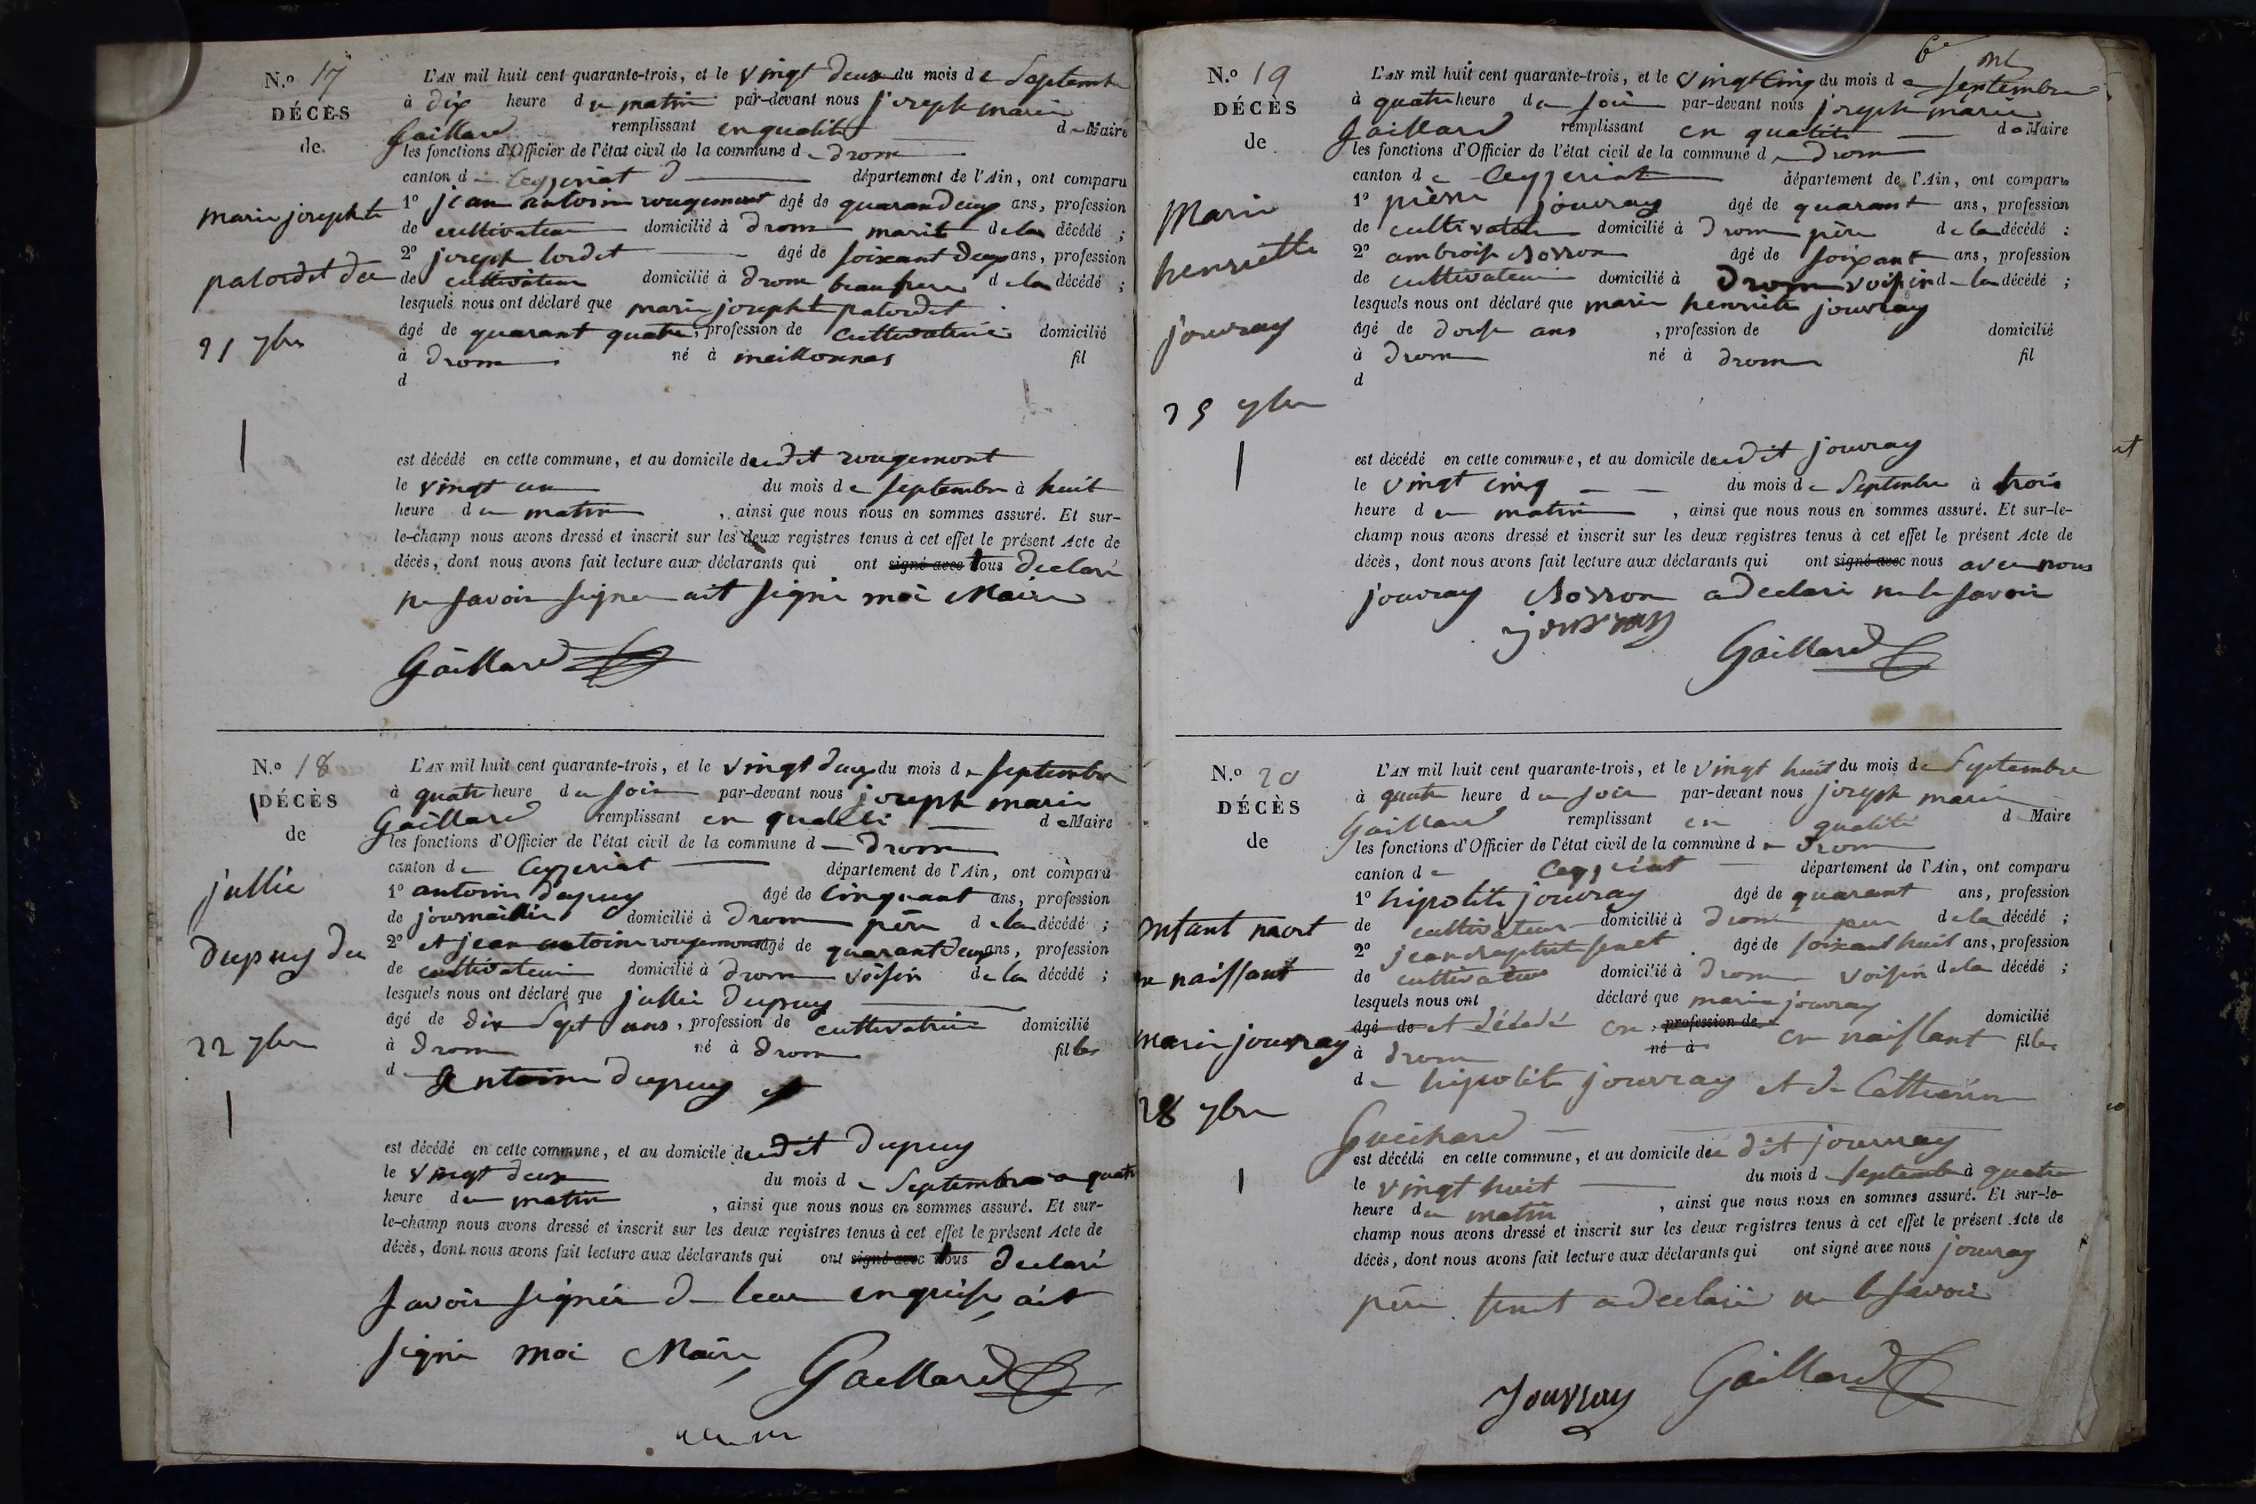 N.º 17
DÉCÈS
de
marie josephte
palordet du
21 7bre
L'AN mil huit cent quarante-trois, et le vingt deux du mois de Septembre
à dix heure du matin par-devant nous joseph marie
Gaillard remplissant en qualité de Maire
les fonctions d'Officier de l'état civil de la commune de drom
canton de Ceyzeriat département de l'Ain, ont comparu
1º jean antoine rougemont âgé de quarandeux ans, profession
de cultivateur domicilié à drom marit de la décédé ;
2º joseph lordet âgé de soixant deux ans, profession
de cultivateur domicilié à drom beaufrere de la décédé ;
lesquels nous ont déclaré que marie josephte palordet
âgé de quarant quatre, profession de cultivatrice domicilié
à drom né à meillonnas fil
d
est décédé en cette commune, et au domicile dudit rougemont
le vingt un du mois de septembre à huit
heure du matin, ainsi que nous nous en sommes assuré. Et sur-
le-champ nous avons dressé et inscrit sur les deux registres tenus à cet effet le présent Acte de
décès, dont nous avons fait lecture aux déclarants qui ont signé avec tous declaré
ne savoir signer ait signé moi Maire
Gaillard
N.º 18
DÉCÈS
de
jullie
dupuy du
22 7bre
L'AN mil huit cent quarante-trois, et le vingt deux du mois de septembre
à quatre heure du soir par-devant nous joseph marie
Gaillard remplissant en qualité de Maire
les fonctions d'Officier de l'état civil de la commune de drom
canton de Ceyzeriat département de l'Ain, ont comparu
1º antoine dupuy âgé de cinquant ans, profession
de journallier domicilié à drom père de la décédé ;
2º et jean antoine rougemont âgé de quarant deux ans, profession
de cultivateur domicilié à drom voisin de la décédé ;
lesquels nous ont déclaré que jullie dupuy
âgé de dix sept ans, profession de cultivatrice domicilié
à drom né à drom filles
d antoine dupuy et
est décédé en cette commune, et au domicile dudit dupuy
le vingt deux du mois de Septembre a quatre
heure du matin, ainsi que nous nous en sommes assuré. Et sur-
le-champ nous avons dressé et inscrit sur les deux registres tenus à cet effet le présent Acte de
décès, dont nous avons fait lecture aux déclarants qui ont signé avec tous declaré
savoir signér de leur enquise ait
signé moi Maire
Gaillard
N.º 19
DÉCÈS
de
Marie
henriette
jouvray
25 7bre
L'AN mil huit cent quarante-trois, et le vingt cinq du mois de septembre
à quatre heure du soir par-devant nous joseph marie
Gaillard remplissant en qualité de Maire
les fonctions d'Officier de l'état civil de la commune de drom
canton de Ceyzeriat département de l'Ain, ont comparu
1º pierre jouvray âgé de quarant ans, profession
de cultivateur domicilié à drom père de la décédé ;
2º ambroise Borron âgé de soixant ans, profession
de cultivateur domicilié à drom voisin de la décédé ;
lesquels nous ont déclaré que marie henriete jouvray
âgé de douse ans, profession de domicilié
à drom né à drom fil
d
est décédé en cette commune, et au domicile dudit jouvray
le vingt cinq du mois de Septembre à trois
heure du matin, ainsi que nous nous en sommes assuré. Et sur-le-
champ nous avons dressé et inscrit sur les deux registres tenus à cet effet le présent Acte de
décès, dont nous avons fait lecture aux déclarants qui ont signé avec nous avec nous
jouvray Borron a declaré ne le savoir
jouvray
Gaillard
N.º 20
DÉCÈS
de
enfant mort
en naissant
marie jouvray
28 7bre
L'AN mil huit cent quarante-trois, et le vingt huit du mois de Septembre
à quatre heure du soir par-devant nous joseph marie
Gaillard remplissant en qualité de Maire
les fonctions d'Officier de l'état civil de la commune de drom
canton de Ceyzeriat département de l'Ain, ont comparu
1º hipolite jouvray âgé de quarant ans, profession
de cultivateur domicilié à drom père de la décédé ;
2º âgé de soixant huit ans, profession
de cultivateur domicilié à drom voisin de la décédé ;
lesquels nous ont déclaré que marie jouvray
âgé de et décédé en profession de en naissant domicilié
à drom né à filles
de hipolite jouvray et de Catherine
Guichard
est décédé en cette commune, et au domicile du dit jouvray
le vingt huit du mois de septembre à quatre
heure du matin, ainsi que nous nous en sommes assuré. Et sur-le-
champ nous avons dressé et inscrit sur les deux registres tenus à cet effet le présent Acte de
décès, dont nous avons fait lecture aux déclarants qui ont signé avec nous jouvray
père a declaré ne le savoir
Jouvray
Gaillard